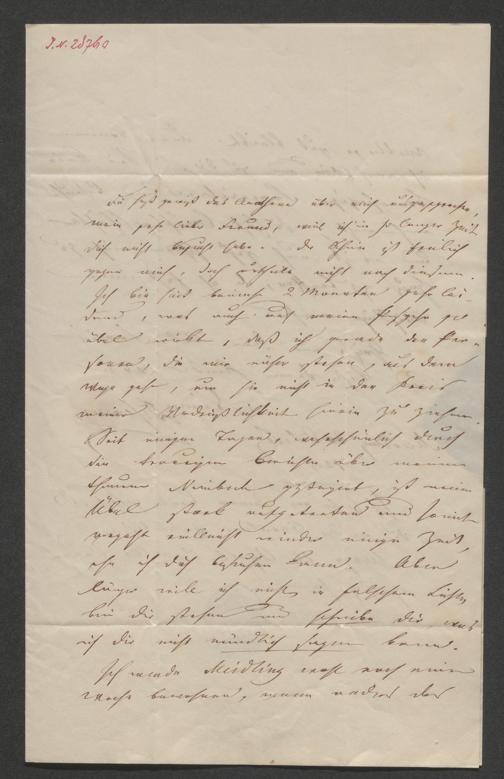 J.N. 28760
Du hast gewiß das Anathema über mich ausgesprochen,
mein sehr lieber Freund, weil ich in so langer Zeit
Dich nicht besucht habe. Der Schein ist freilich
gegen mich, doch urtheile nicht nach diesem.
Ich bin seit beinahe 2 Monaten sehr lei-
dend, was auch auf meine Psyche so
übel wirkt, daß ich gerade den Per-
sonen, die mir näher stehen, aus dem
Wege gehe, um sie nicht in den Kreis
meiner Verdrießlichkeit hinein zu ziehen.
Seit einigen Tagen, wahrscheinlich durch
die traurigen Berichte über meinen
theuren ist mein
Übel stark aufgetreten und somit
vergeht vielleicht wieder einige Zeit,
ehe ich Dich besuchen kann. Aber
länger will ich nicht in falschem Lichte
bei Dir stehen und schreibe Dir was
ich Dir nicht mündlich sagen kann.
Ich werde Meidling wohl noch eine
Woche bewohnen, wenn anders das